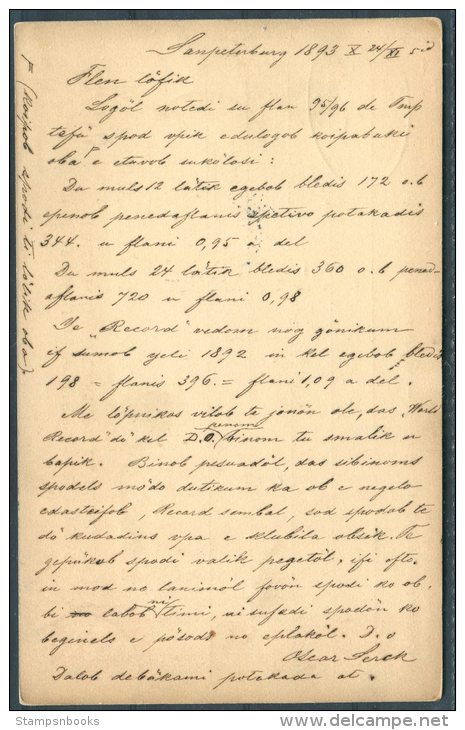 Sanpeterburg 1893 X 24/XI 5id
Flen löfik
Logöl notedi su flan 95/96 de Tmp
tefü spod vpik edulogob koipabuki
oba F e etuvob sukölosi:
Du muls 12 lätik egebob bledis 172 o.b
penob penedaflanis spetivo potakadis
344. u flani 0,95 a del
Du muls 24 lätik bledis 360 o.b pened-
aflanis 720 u flani 0,98
Te "Record" vedom nog gönikum
if sumob yeli 1892 in kel egebob bledis
198 = flanis 396. = flani 1,09 a del.
Me löpnikos vilob te jonön ole, das "World
Record" dö kel D.O. penom binom tu smalik u
bapik. Binob pesuadöl, das sibinoms
spodels mödo dutikum ka ob e negelo
edasteifob, Record sembal, sod spodob te
dö kudadins vpa e klubila obsik.
gepükob spodi valik pegetöl, ifi ofto
in mod no lanimöl fovön spodi ko ob.
bi labob nu timi, ai sufädi spodön ko
beginels e pösods no eplaköl. D. o
Oscar Serck
Dalob debökami potakada at.
F (Koipob spodi ti lätik oba)
Stampsnbooks